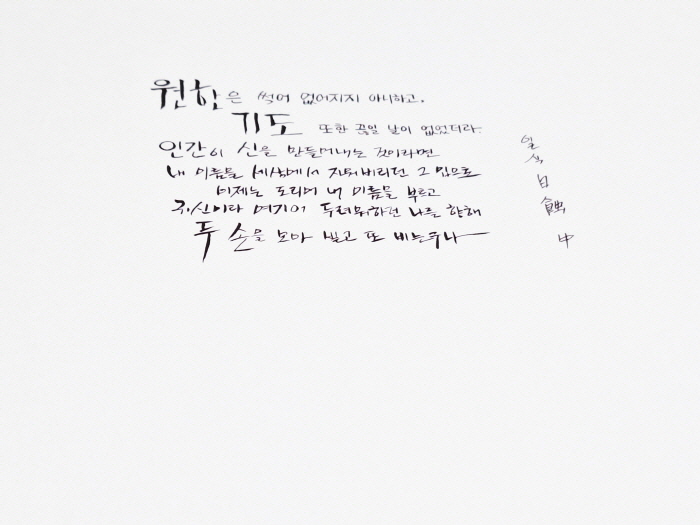 원한은 썩어 없어지지 아니하고,
기도 또한 끊일 날이 없었더라.
인간이 신을 만들어내는 것이라면
내 이름을 세상에서 지워버리던 그 입으로
이제는 도리어 내 이름을 부르고
귀신이라 여기어 두려워하던 나를 향해
두 손을 모아 빌고 또 비는구나
일식
日
蝕
中